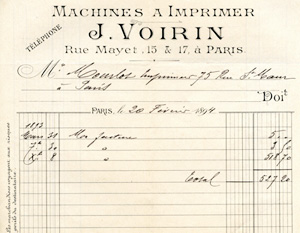 MACHINES A IMPRIMER
TÉLÉPHONE
J. VOIRIN
Rue Mayet, 15 & 17, à PARIS.
Mr. Mourlot Imprimeur 75 Rue St Maur
à Paris Doit
PARIS, le 20 Février 1894
1893
Mars 30 Ma facture 5 "
7bre 30 " 3.50
Xbre 8 " 518.70
Total 527.20